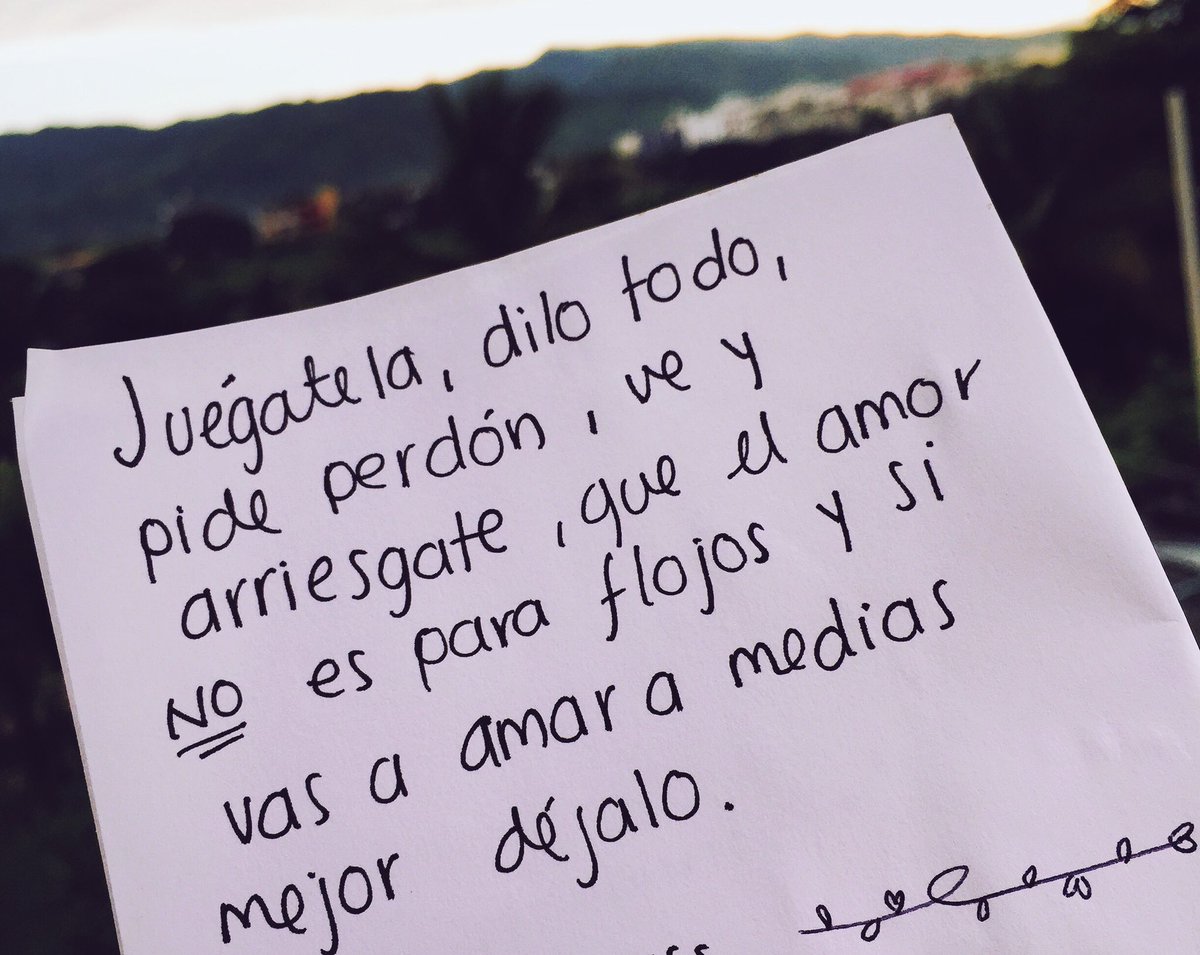 Juégatela, dilo todo,
pide perdón, ve y
arriesgate, que el amor
NO es para flojos y si
vas a amar a medias
mejor déjalo.